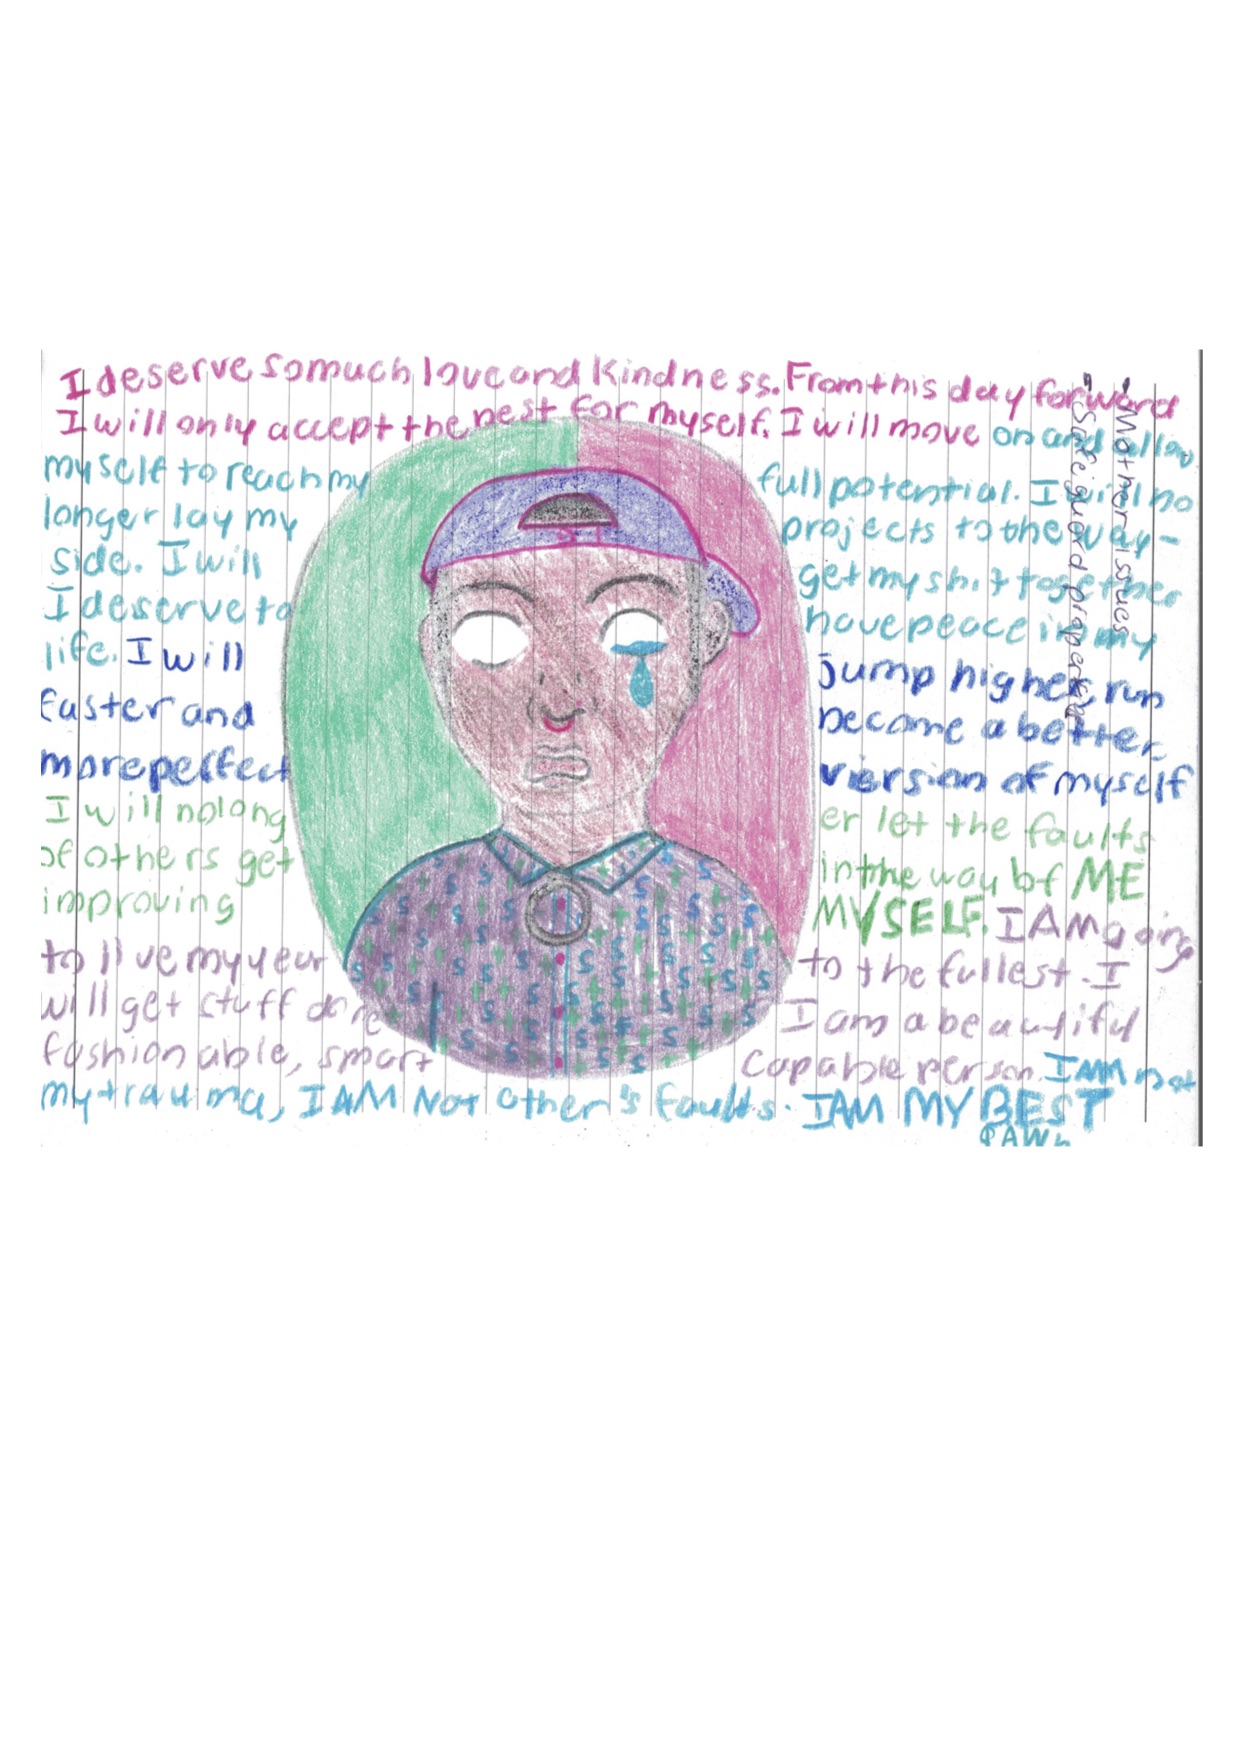 I deserve so much love and kindness. From this day forward
I will only accept the best for myself. I will move on and allow
myself to reach my full potential. I will no
longer lay my projects to the way-
side. I will get my shit together
I deserve to have peace in my
life. I will jump higher, run
faster and become a better,
more perfect version of myself
I will no long er let the faults
of others get in the way of ME
improving MYSELF. I AM going
to live my year to the fullest. I
will get stuff done I am a beautiful
fashionable, smart capable person. I AM not
my trauma, I AM Not other's faults. I AM MY BEST
- Mother issues
- Safeguard properly